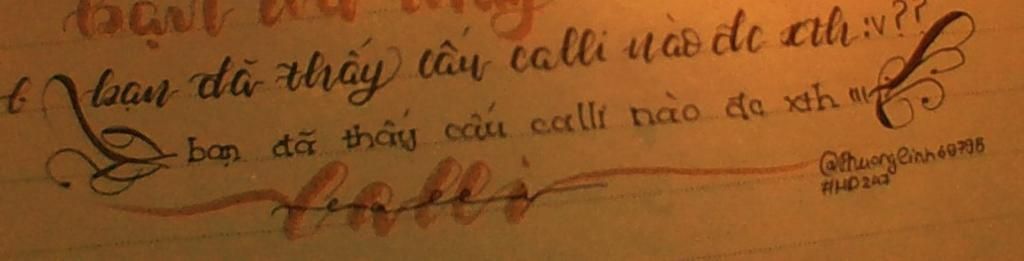 bạn đã thấy
bạn đã thấy câu calli nào đc xth :v??
bạn đã thấy câu calli nào đc xth
calli
@Phuonglinh69798
#HD247